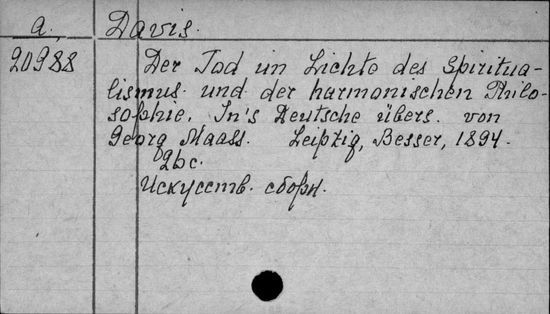 a. Davis.
20988 Der Tod im Lichte des Spiritua-
lismus und der harmonischen Philo-
sophie. In's Deutsche übers. von
Georg Maass. Leipzig, Besser, 1894.
2bc.
Искусств. сборн.